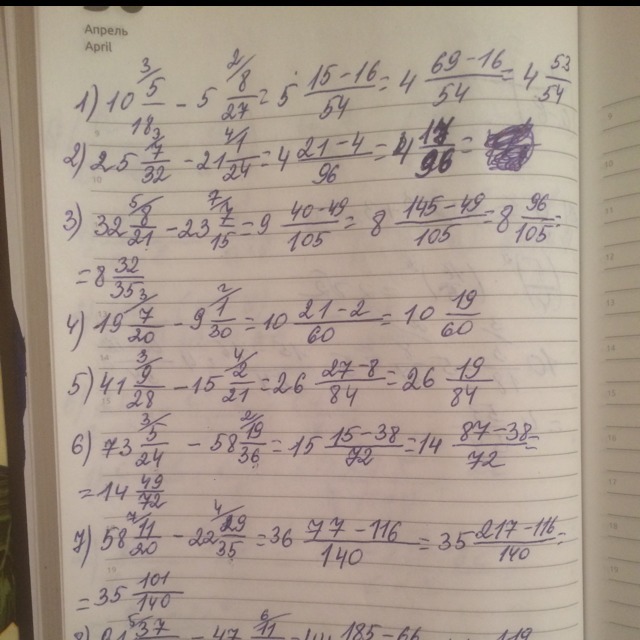 Апрель
April
1) 10 5/18 (3/) − 5 8/27 (2/) = 5 (15−16)/54 = 4 (69−16)/54 = 4 53/54
2) 25 7/32 (3/) − 21 1/24 (4/) = 4 (21−4)/96 = 4 17/96 =
3) 32 8/21 (5/) − 23 7/15 (7/) = 9 (40−49)/105 = 8 (145−49)/105 = 8 96/105 =
= 8 32/35
4) 19 7/20 (3/) − 9 1/30 (2/) = 10 (21−2)/60 = 10 19/60
5) 41 9/28 (3/) − 15 2/21 (4/) = 26 (27−8)/84 = 26 19/84
6) 73 5/24 (3/) − 58 19/36 (2/) = 15 (15−38)/72 = 14 (87−38)/72 =
= 14 49/72
7) 58 11/20 (7/) − 22 29/35 (4/) = 36 (77−116)/140 = 35 (217−116)/140 =
= 35 101/140
37 − 47 11 185−66 119